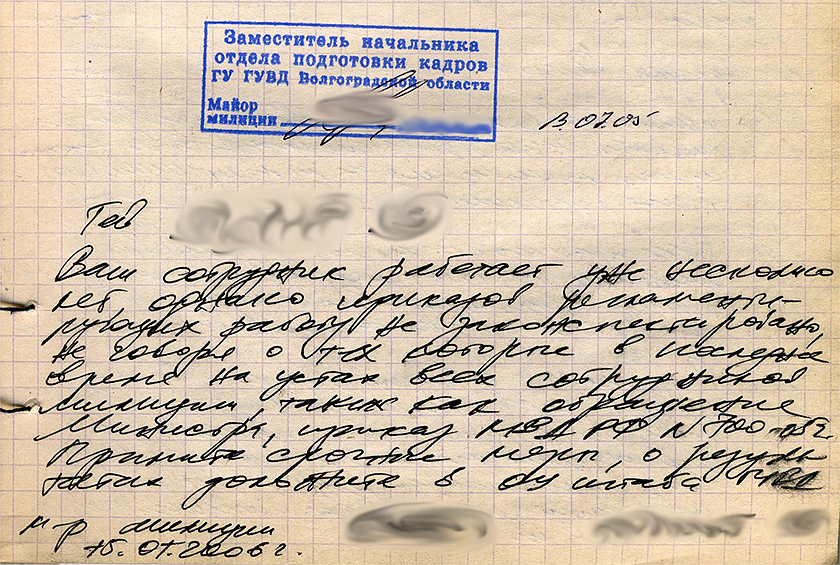 Заместитель начальника
отдела подготовки кадров
ГУ ГУВД Волгоградской области
Майор
милиции
07.05
Тов
Ваш сотрудник работает уже несколько
лет, однако приказов регламенти-
рующих работу не законспектировано,
не говоря о тех которые в последнее
время на устах всех сотрудников
милиции, таких как обращение
Министра, приказ МВД РФ N 700
Примите срочные меры, о резуль
татах доложите в штаба
м-р милиции
15.01.2006 г.